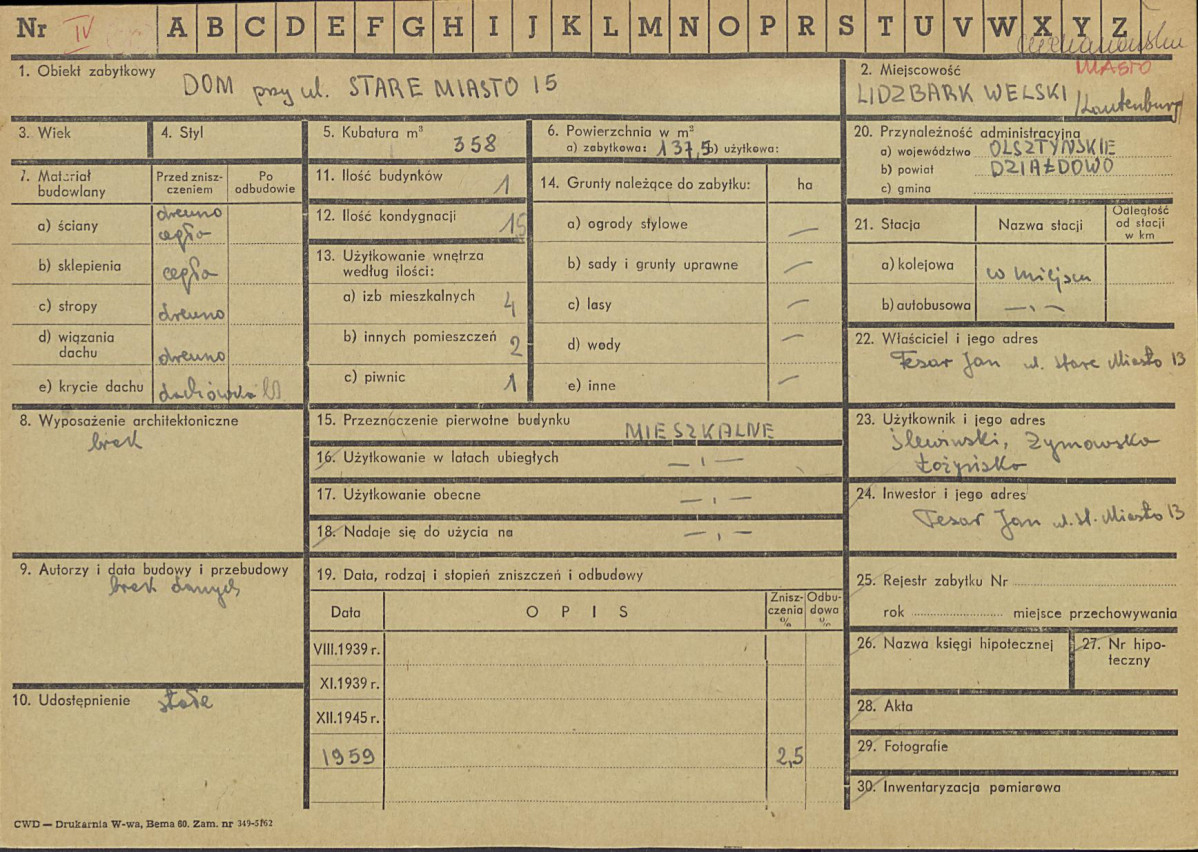 Nr IV A B C D E F G H I J K L M N O P R S T U V W X Y Z
1. Obiekt zabytkowy
DOM przy ul. STARE MIASTO 15
2. Miejscowość
MIASTO
LIDZBARK WELSKI /Lautenburg/
3. Wiek
4. Styl
5. Kubatura m³
358
6. Powierzchnia w m²
a) zabytkowa: 137,5 b) użytkowa:
20. Przynależność administracyjna
a) województwo OLSZTYŃSKIE
b) powiat DZIAŁDOWO
c) gmina
7. Materiał budowlany
Przed zniszczeniem
Po odbudowie
a) ściany
drewno
cegła
b) sklepienia cegła
c) stropy drewno
d) wiązania dachu drewno
e) krycie dachu dachówka
11. Ilość budynków 1
12. Ilość kondygnacji 15
13. Użytkowanie wnętrza
według ilości:
a) izb mieszkalnych 4
b) innych pomieszczeń 2
c) piwnic 1
14. Grunty należące do zabytku: ha
a) ogrody stylowe —
b) sady i grunty uprawne —
c) lasy —
d) wody —
e) inne —
21. Stacja
Nazwa stacji
Odległość od stacji w km
a) kolejowa w miejscu
b) autobusowa —,,—
22. Właściciel i jego adres
Tesar Jan ul. Stare Miasto 13
8. Wyposażenie architektoniczne
brak
15. Przeznaczenie pierwotne budynku
MIESZKALNE
16. Użytkowanie w latach ubiegłych —,,—
17. Użytkowanie obecne —,,—
18. Nadaje się do użycia na —,,—
23. Użytkownik i jego adres
Ślewiński, Żymowska
24. Inwestor i jego adres
Tesar Jan ul. St. Miasto 13
9. Autorzy i data budowy i przebudowy
brak danych
19. Data, rodzaj i stopień zniszczeń i odbudowy
Data
OPIS
Zniszczenia %
Odbudowa %
VIII.1939 r.
XI.1939 r.
XII.1945 r.
1959 2,5
25. Rejestr zabytku Nr
rok miejsce przechowywania
26. Nazwa księgi hipotecznej
27. Nr hipoteczny
10. Udostępnienie stałe
28. Akta
29. Fotografie
30. Inwentaryzacja pomiarowa
CWD — Drukarnia W-wa, Bema 60. Zam. nr 349-5162